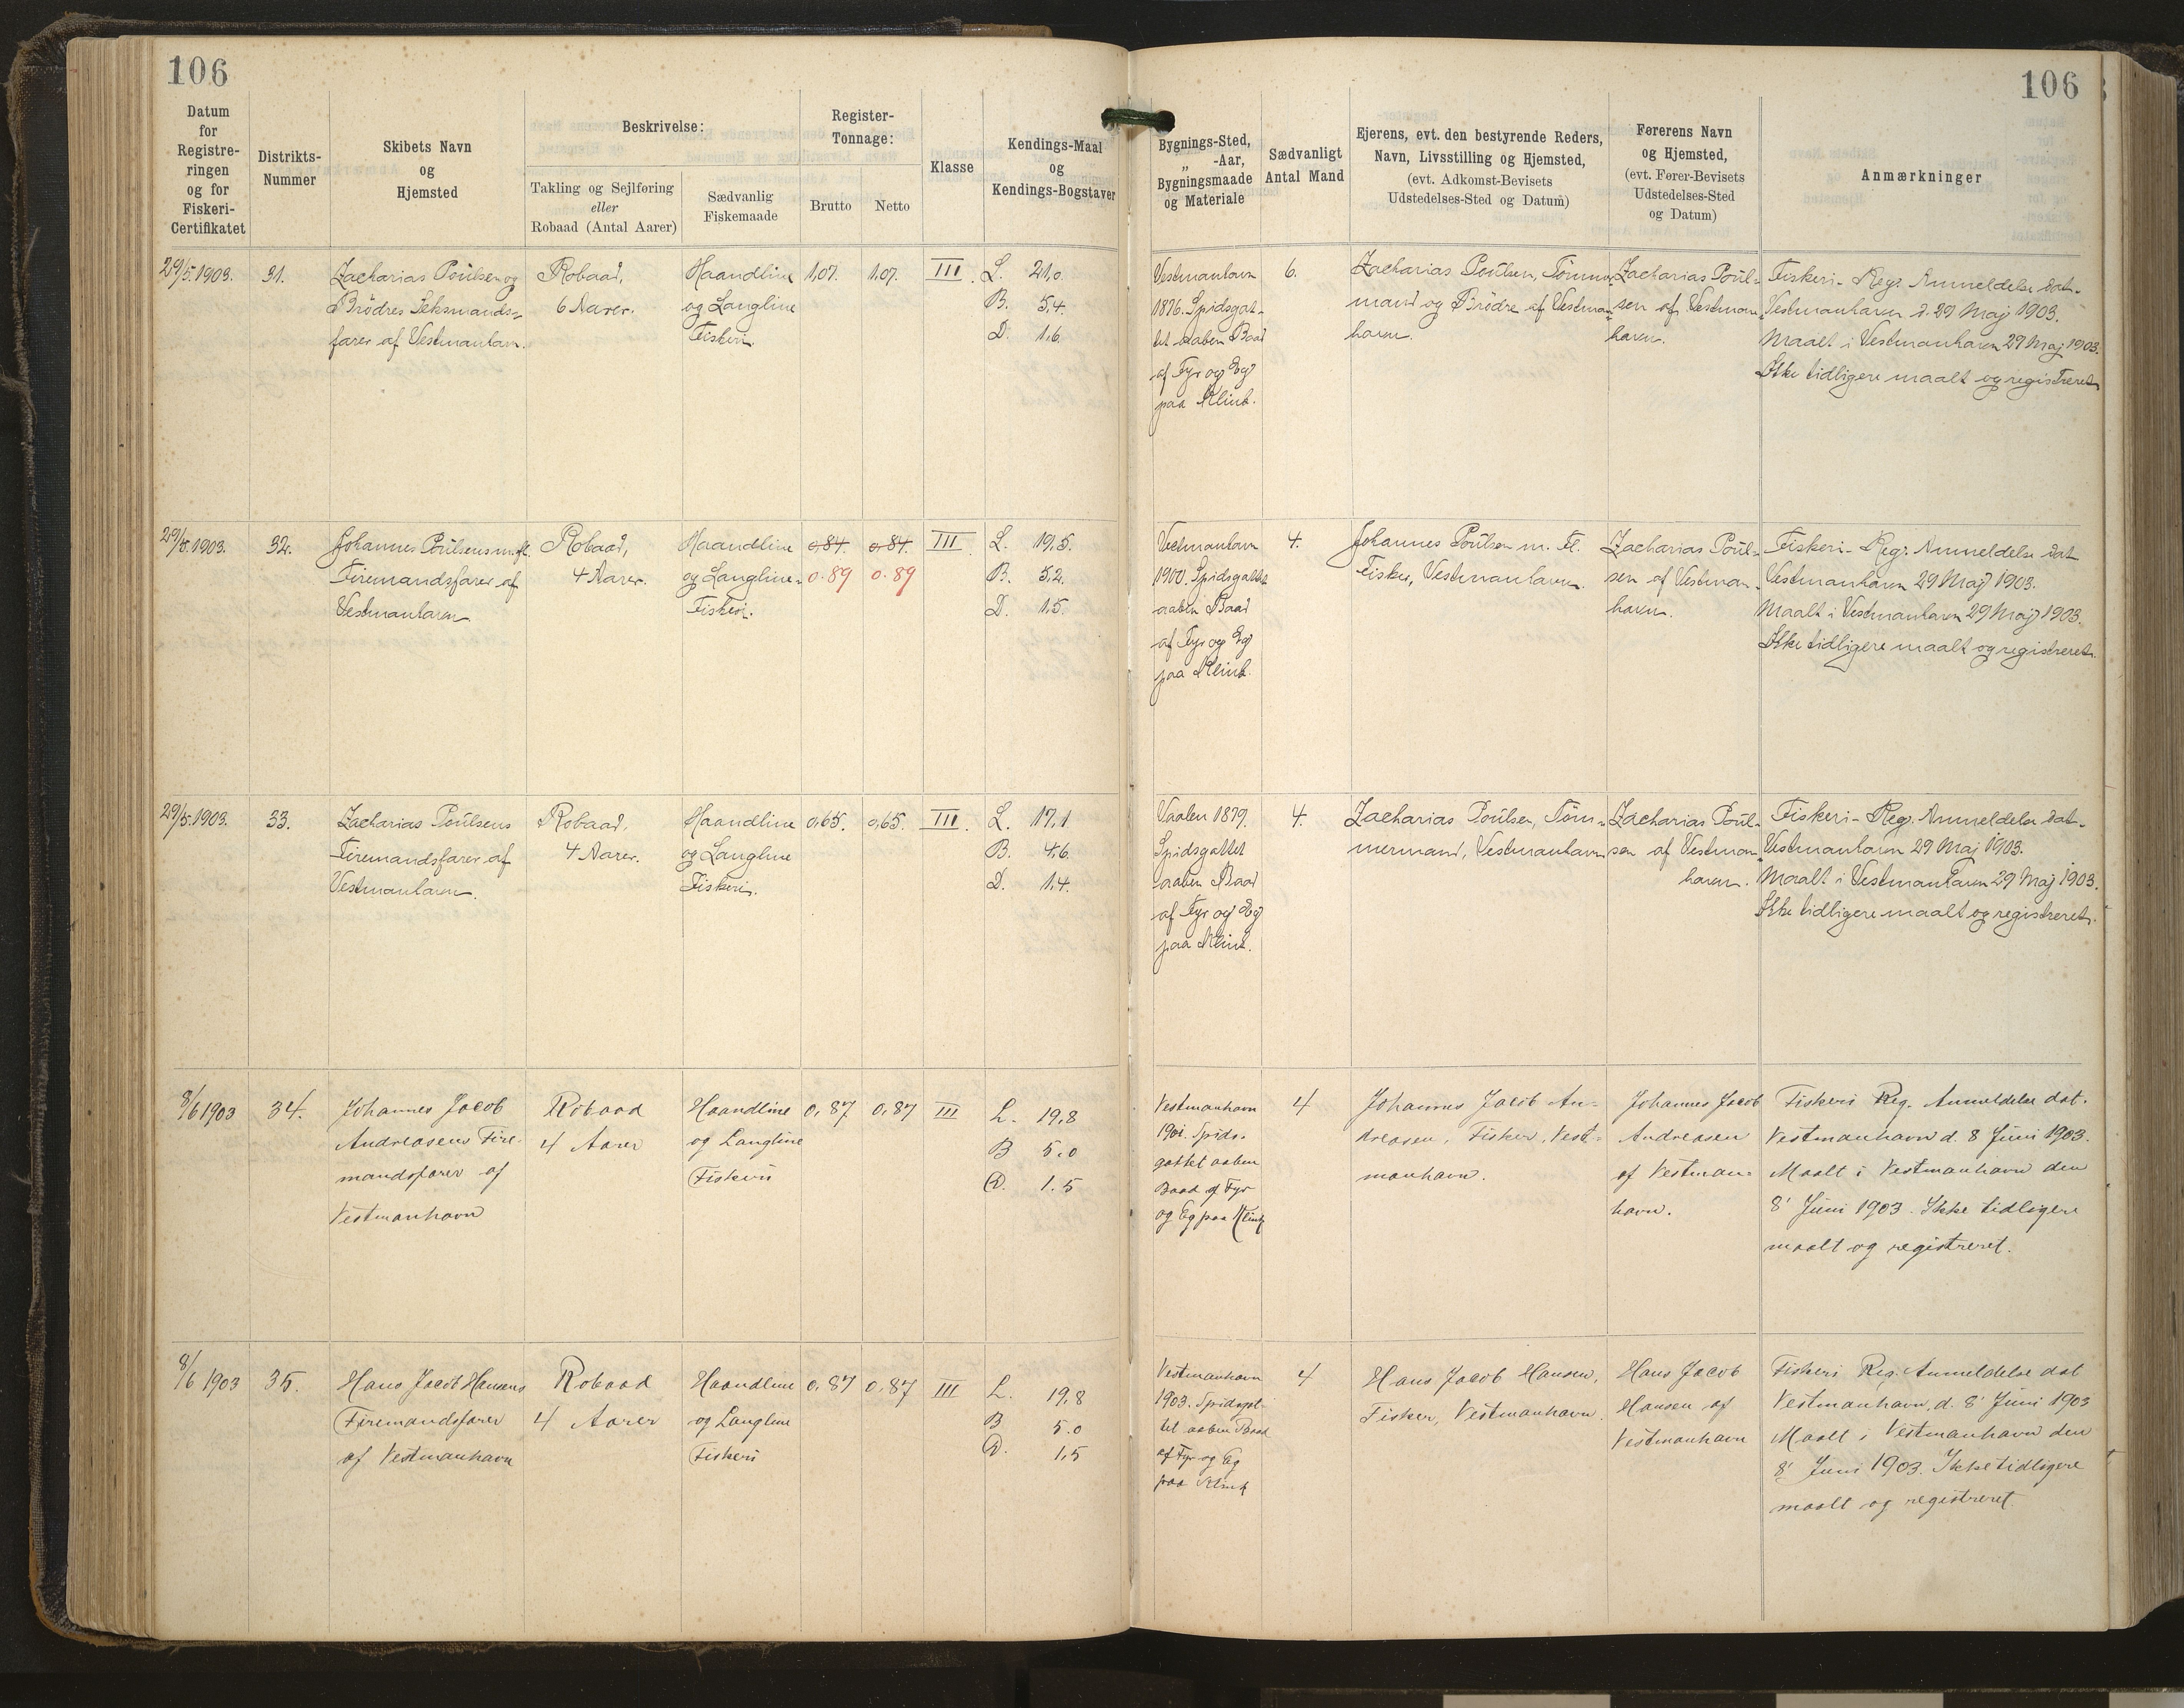 106
106
Datum
for
Registre-
ringen
og for
Fiskeri-
Certifikatet
Distrikts-
Nummer
Skibets Navn
og
Hjemsted
Beskrivelse:
Takling og Sejlføring
eller
Robaad (Antal Aarer)
Sædvanlig
Fiskemaade
Register-
Tonnage:
Brutto
Netto
Klasse
Kendings-Maal
og
Kendings-Bogstaver
Bygnings-Sted,
„ -Aar,
Bygningsmaade
og Materiale
Sædvanligt
Antal Mand
Ejerens, evt. den bestyrende Reders,
Navn, Livsstilling og Hjemsted,
(evt. Adkomst-Bevisets
Udstedelses-Sted og Datum)
Førerens Navn
og Hjemsted,
(evt. Fører-Bevisets
Udstedelses-Sted
og Datum)
Anmærkninger
29/5. 1903.
31.
Zacharias Poülsen og
Brödres Seksmands-
farer af Vestmanhavn.
Robaad,
6 Aarer.
Haandline
og Langline
Fiskeri.
1,07.
1,07.
III.
L. 21,0.
B. 5,4.
D. 1,6.
Vestmanhavn
1876. Spidsgat-
tet aaben Baad
af Fyr og Eg
paa Klink.
6.
Zacharias Poülsen, Tömmer-
mand og Brödre af Vestman-
havn.
Zacharias Poül-
sen af Vestman-
havn.
Fiskeri-Regr. Anmeldelse dat.
Vestmanhavn d. 29 Maj 1903.
Maalt i Vestmanhavn 29 Maj 1903.
Ikke tidligere maalt og registreret.
29/5. 1903.
32.
Johannes Poülsens m. fl.
Firemandsfarer af
Vestmanhavn
Robaad,
4 Aarer.
Haandline
og Langline-
Fiskeri.
0,84.
0.89
0,84.
0.89
III.
L. 19,5.
B. 5,2.
D. 1,5.
Vestmanhavn
1900. Spidsgattet
aaben Baad
af Fyr og Eg
paa Klink.
4.
Johannes Poülsen m. Fl.
Fisker, Vestmanhavn.
Zacharias Poül-
sen af Vestman-
havn.
Fiskeri-Regr. Anmeldelse dat
Vestmanhavn 29 Maj 1903.
Maalt i Vestmanhavn 29 Maj 1903.
Ikke tidligere maalt og registreret.
29/5. 1903.
33.
Zacharias Poülsens
Firemandsfarer af
Vestmanhavn
Robaad,
4 Aarer.
Haandline
og Langline
Fiskeri.
0,65.
0,65.
III.
L. 17,1
B. 4,6.
D. 1,4.
1879.
Spidsgattet
aaben Baad
af Fyr og Eg
paa Klink.
4.
Zacharias Poülsen, Töm-
mermand, Vestmanhavn
Zacharias Poül-
sen af Vestman-
havn.
Fiskeri-Regr. Anmeldelse dat.
Vestmanhavn 29 Maj 1903.
Maalt i Vestmanhavn 29 Maj 1903.
Ikke tidligere maalt og registreret.
8/6 1903
34.
Johannes Jacob
Andreasens Fire-
mandsfarer af
Vestmanhavn
Robaad
4 Aarer
Haandline
og Langline
Fiskeri
0,87
0,87
III
L. 19,8
B 5.0
D. 1.5
Vestmanhavn
1901. Spids-
gattet aaben
Baad af Fyr
og Eg paa Klink
4
Johannes Jacob An-
dreasen, Fisker, Vest-
manhavn.
Johannes Jacob
Andreasen
af Vestman-
havn.
Fiskeri Reg. Anmeldelse dat.
Vestmanhavn d. 8 Juni 1903.
Maalt i Vestmanhavn den
8' Juni 1903. Ikke tidligere
maalt og registreret.
8/6 1903
35.
Hans Jacob Hansens
Firemandsfarer
af Vestmanhavn
Robaad
4 Aarer
Haandline
og Langline
Fiskeri
0,87
0,87
III
L. 19,8
B 5.0
D. 1,5
Vestmanhavn
1903. Spidsgat-
tet aaben Baad
af Fyr og Eg
paa Klink
4
Hans Jacob Hansen,
Fisker, Vestmanhavn.
Hans Jacob
Hansen af
Vestmanhavn
Fiskeri Reg. Anmeldelse dat
Vestmanhavn, d. 8' Juni 1903
Maalt i Vestmanhavn den
8' Juni 1903. Ikke tidligere
maalt og registreret.